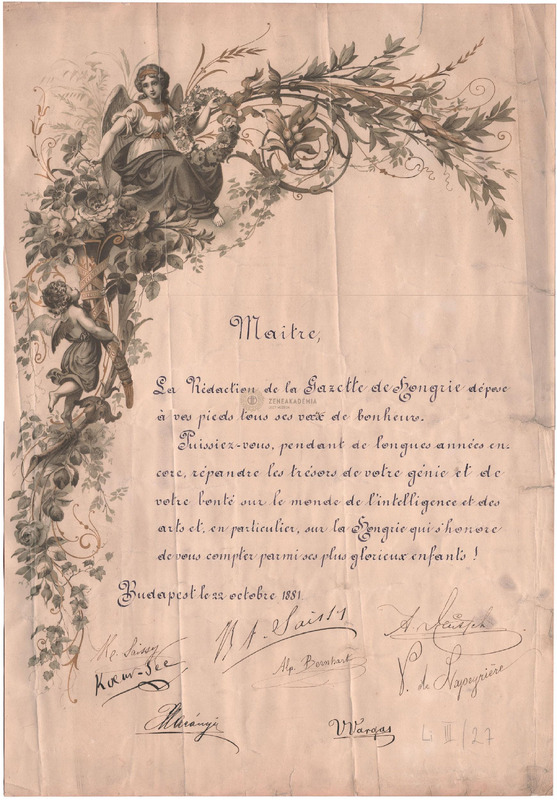 Maitre,
La Rédaction de la Gazette de Hongrie dépose
à vos pieds tous ses vœux de bonheur.
ZENEAKADÉMIA
LISZT MÚZEUM
Puissiez-vous, pendant de longues années en-
core, répandre les trésors de votre génie et de
votre bonté sur le monde de l'intelligence et des
arts et, en particulier, sur la Hongrie qui s'honore
de vous compter parmi ses plus glorieux enfants !
Budapest le 22 octobre 1881.
Saissy
A. Saissy
A.
Kœur-See
Alp. Bernhart
V. de Lapeyrière
V Vargas
Li III / 27